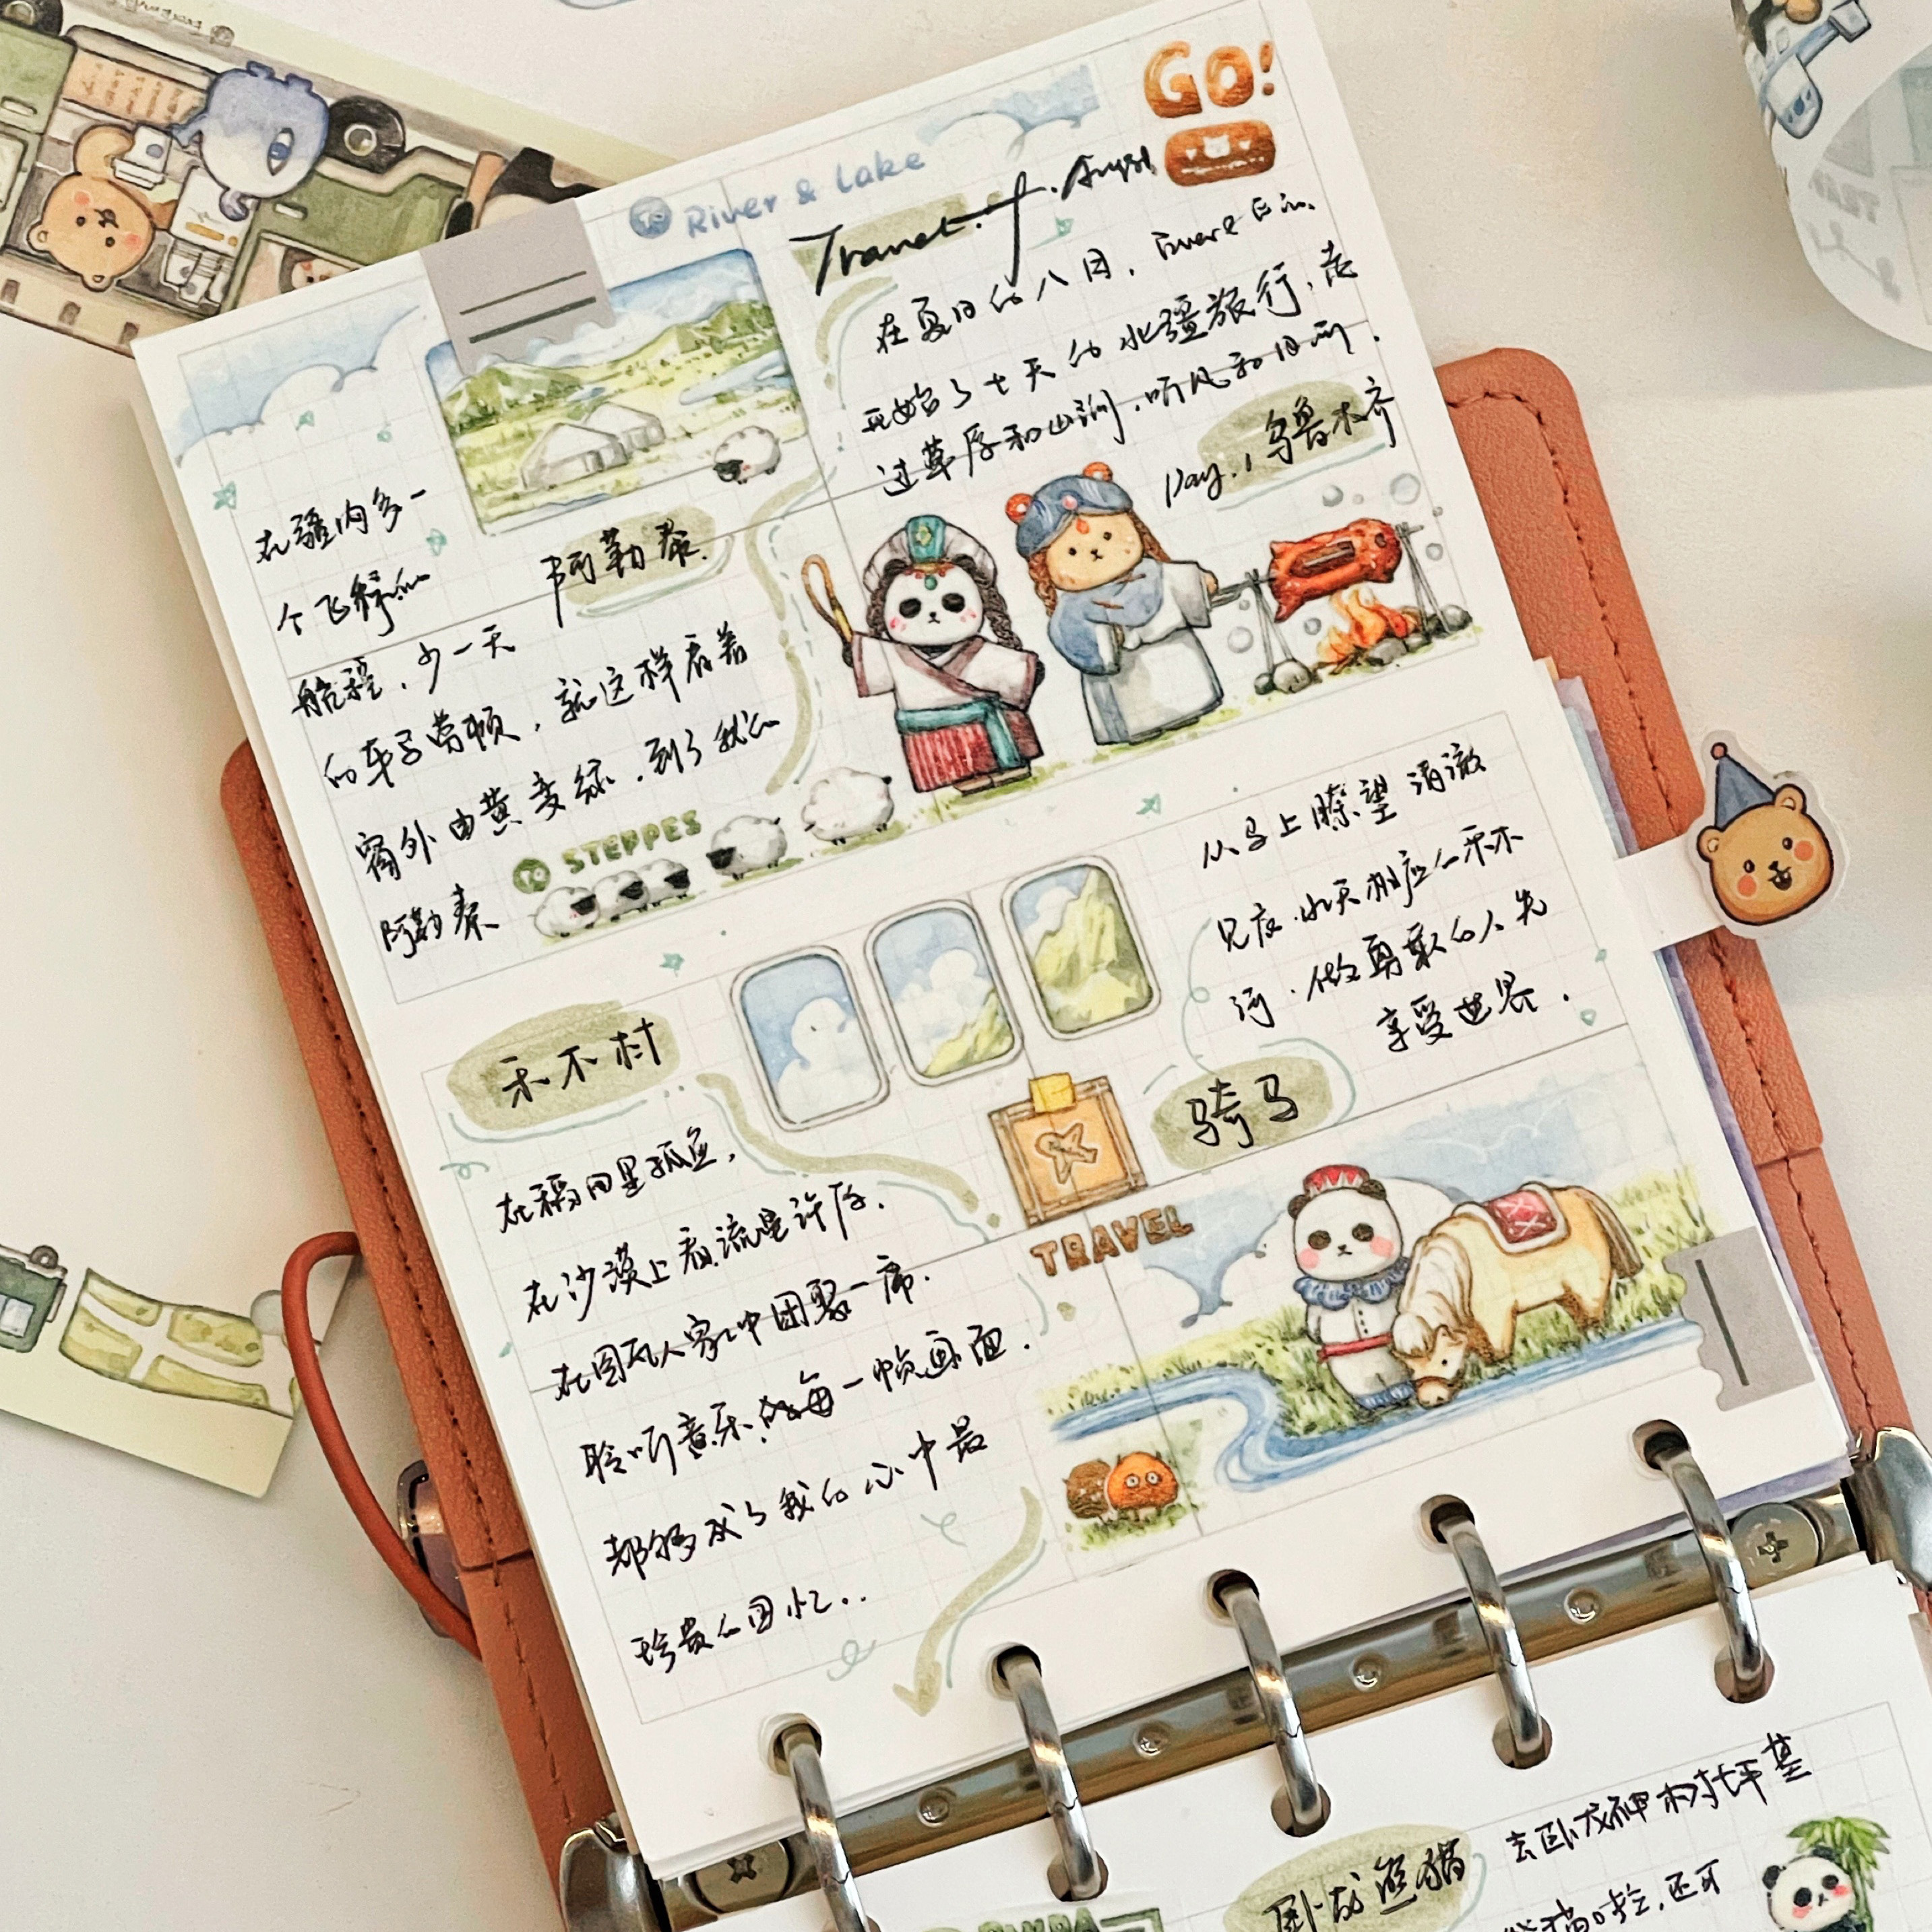 GO!
TO River & Lake
Travel.
在夏日的八月,
开始了七天的北疆旅行,走
过草原和山涧,听风和日雨.
Day.1 乌鲁木齐
阿勒泰.
在疆内多一
个飞行的
航程,少一天
的车子劳顿,就这样看着
窗外由黄变绿,到了我的
阿勒泰
TO STEPPES
从马上瞭望清澈
见底,水天相应的禾木
河.做勇敢的人先
享受世界.
禾木村
骑马
TRAVEL
在稻田里抓鱼,
在沙漠上看流星许愿.
在图瓦人家中团聚一席.
聆听音乐的每一帧画面.
都够成了我的心中最
珍贵的回忆..
卧龙熊猫
去卧龙神树坪基
还可
PANDA